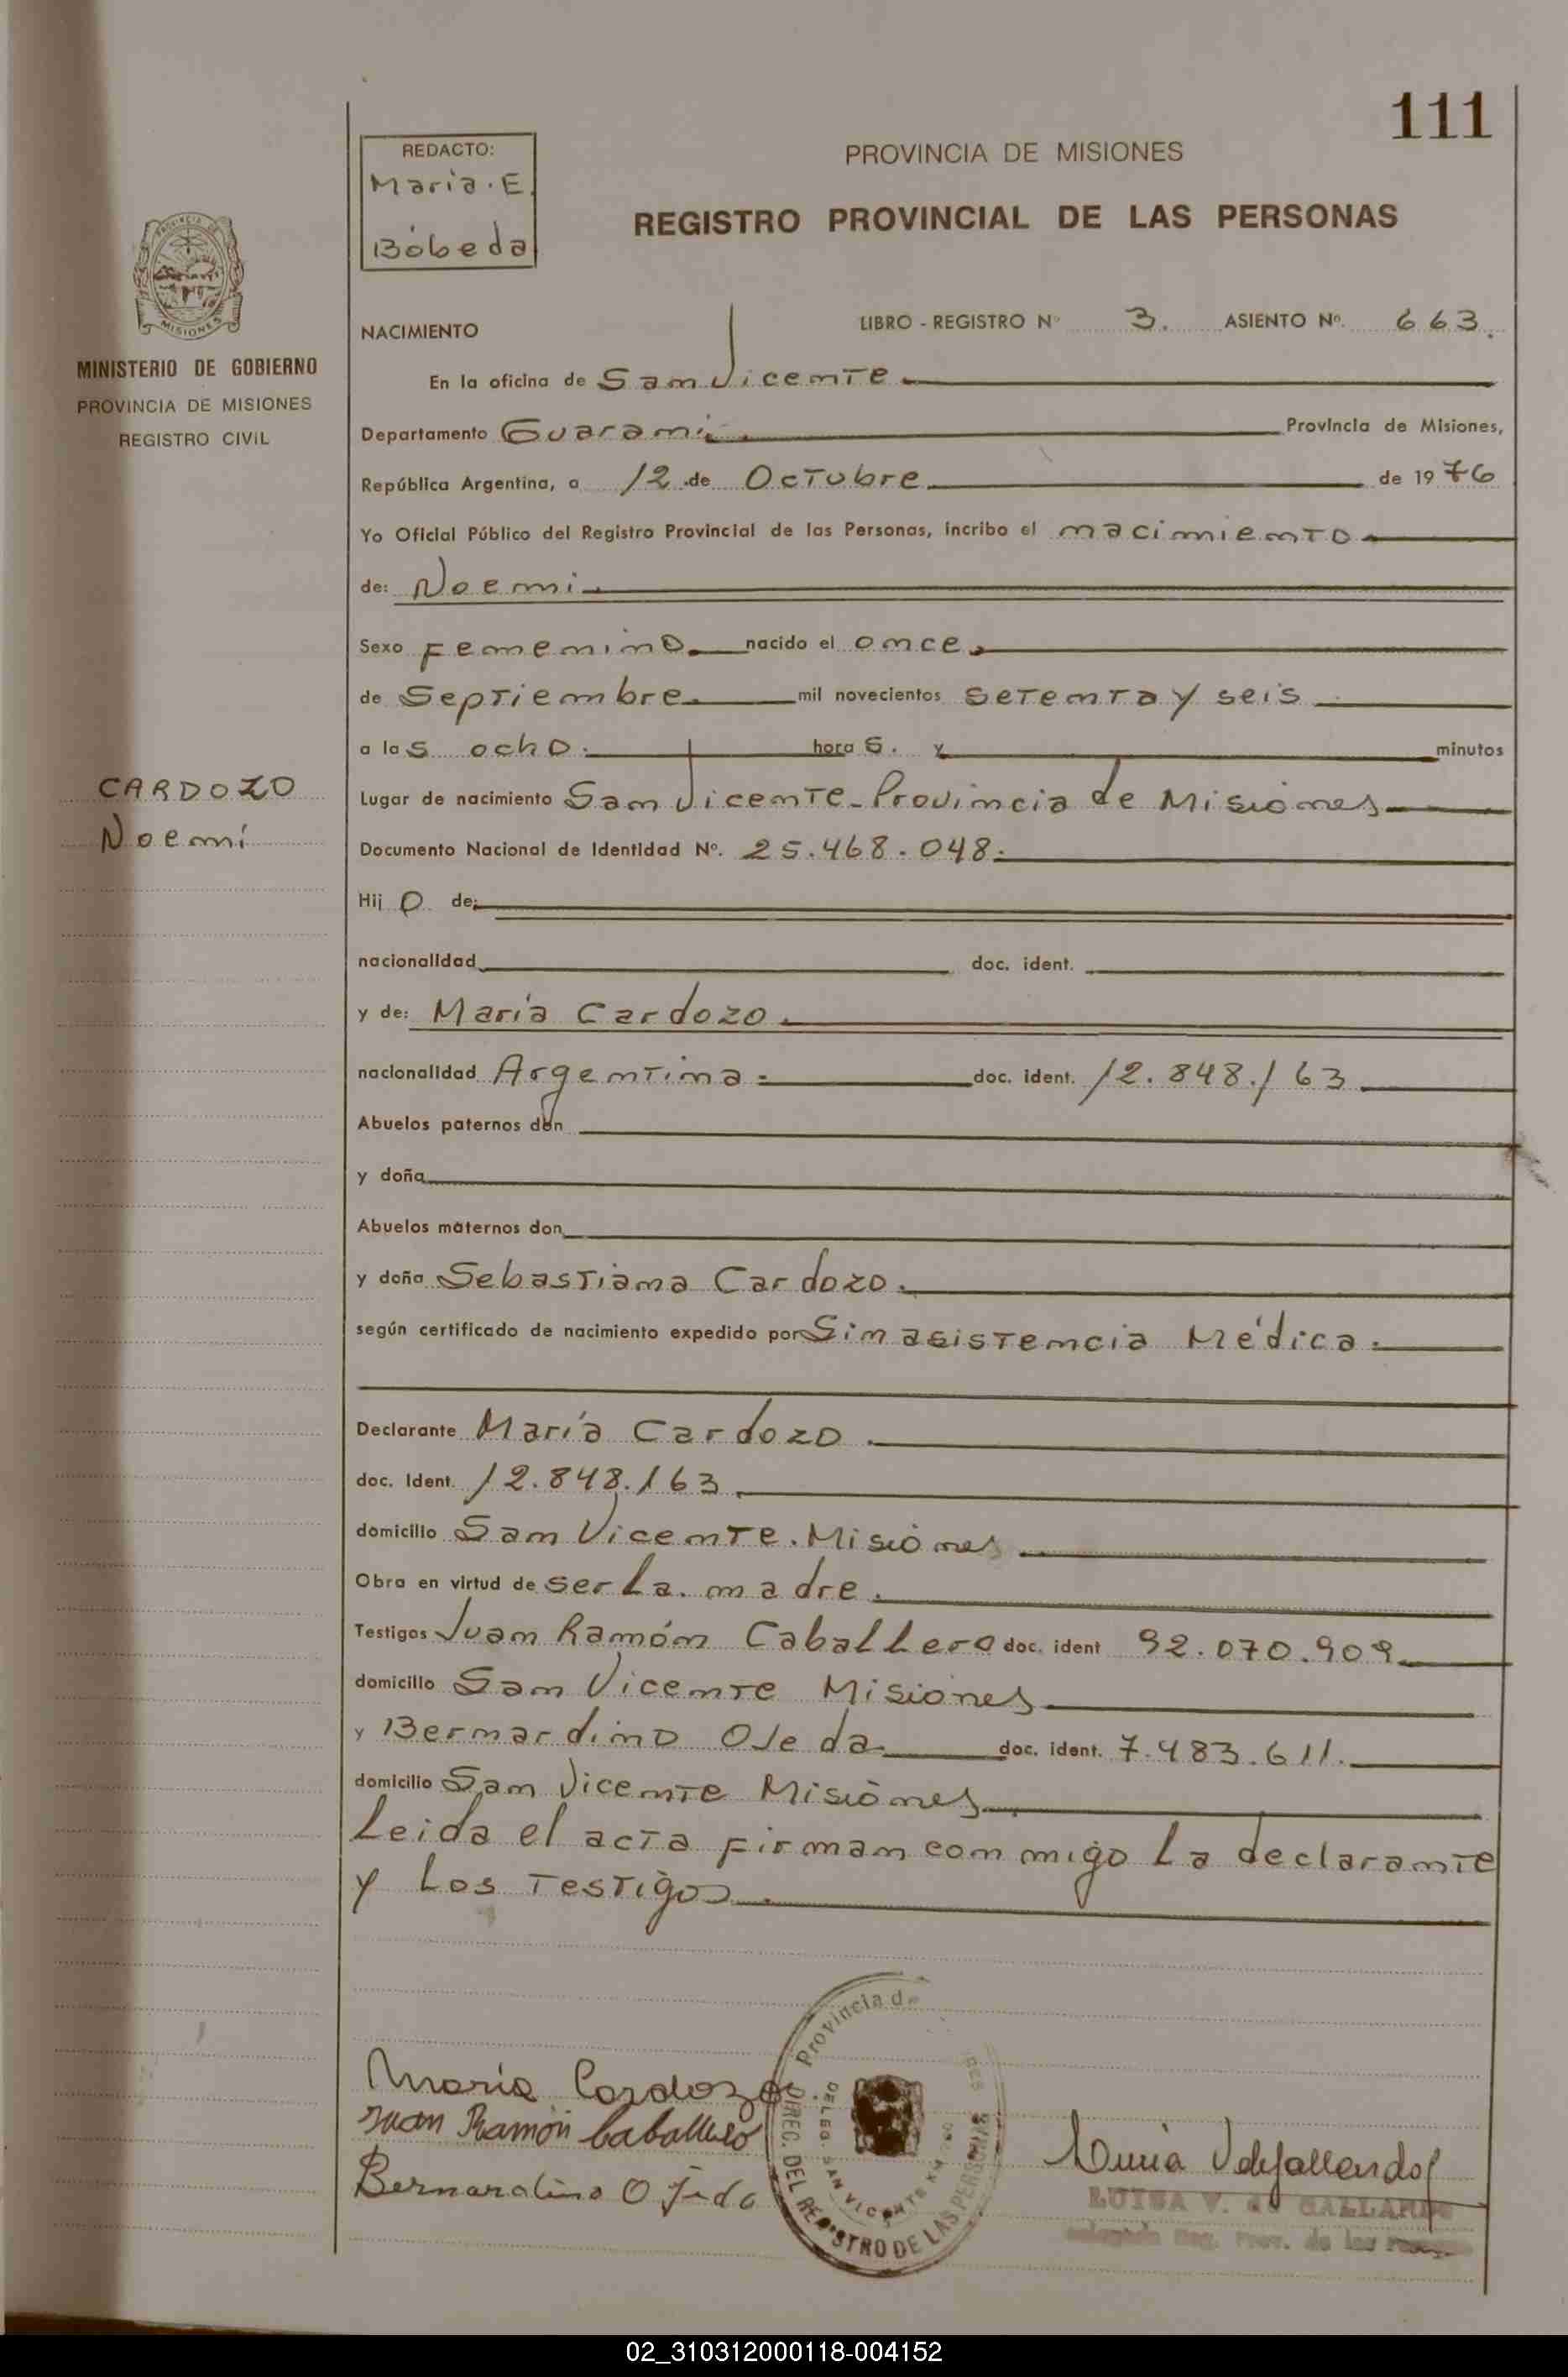 111
REDACTO:
Maria. E.
Bóbeda
PROVINCIA DE MISIONES
REGISTRO PROVINCIAL DE LAS PERSONAS
MISIONES
MINISTERIO DE GOBIERNO
PROVINCIA DE MISIONES
REGISTRO CIVIL
NACIMIENTO
LIBRO - REGISTRO Nº 3. ASIENTO Nº. 663.
En la oficina de San Vicente
Departamento Guarani Provincia de Misiones,
República Argentina, a 12 de Octubre de 1976
Yo Oficial Público del Registro Provincial de las Personas, incribo el nacimiento
de: Noemi
Sexo Femenino nacido el once
de Septiembre mil novecientos setenta y seis
a las ocho. horas. y minutos
CARDOZO
Noemí
Lugar de nacimiento San Vicente - Provincia de Misiones
Documento Nacional de Identidad Nº. 25.468.048.
Hij o de:
nacionalidad doc. ident.
y de: María Cardozo
nacionalidad Argentina doc. ident. 12.848.163
Abuelos paternos don
y doña
Abuelos maternos don
y doña Sebastiana Cardozo.
según certificado de nacimiento expedido por Sin asistencia Médica.
Declarante María Cardozo.
doc. Ident. 12.848.163
domicilio San Vicente. Misiones
Obra en virtud de ser La. madre.
Testigos Juan Ramón Caballero doc. ident 92.070.909
domicilio San Vicente Misiones
y Bernardino OJeda doc. ident. 7.483.611.
domicilio San Vicente Misiones
Leida el acta firman con migo La declarante
y Los Testigos
María Cardozo
Juan Ramón Caballero
Bernardino Ojeda
Provincia de
DIREC. DEL REGISTRO DE LAS PERSONAS
DELEG. SAN VICENTE
LUISA V. de GALLARDO
Reg. Prov. de las
02_310312000118-004152